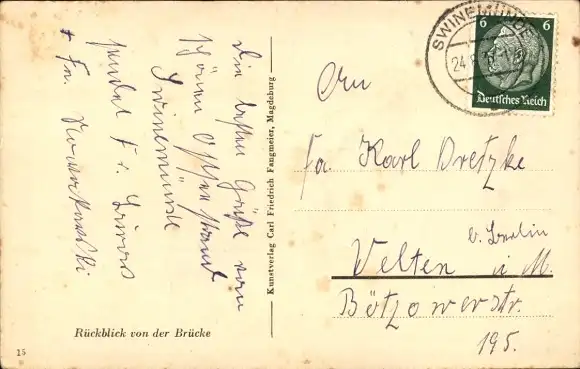 Die besten Grüße vom
schönen Ostseestrand
Swinemünde
sendet F. v.
+ Fr.
Rückblick von der Brücke
15
Kunstverlag Carl Friedrich Fangmeier, Magdeburg
SWINEMÜNDE
24
6 6
Deutsches Reich
An
Fa. Karl Dretzke
b. Berlin
Velten i. M.
Bötzowerstr.
195.